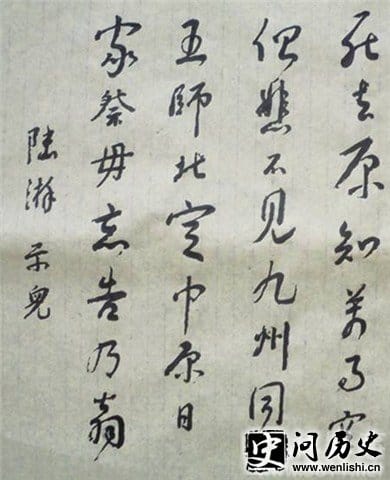 死去原知萬事空
但悲不见九州同
王師北定中原日
家祭毋忘告乃翁
陸游 示兒
问历史
www.wenlishi.cn